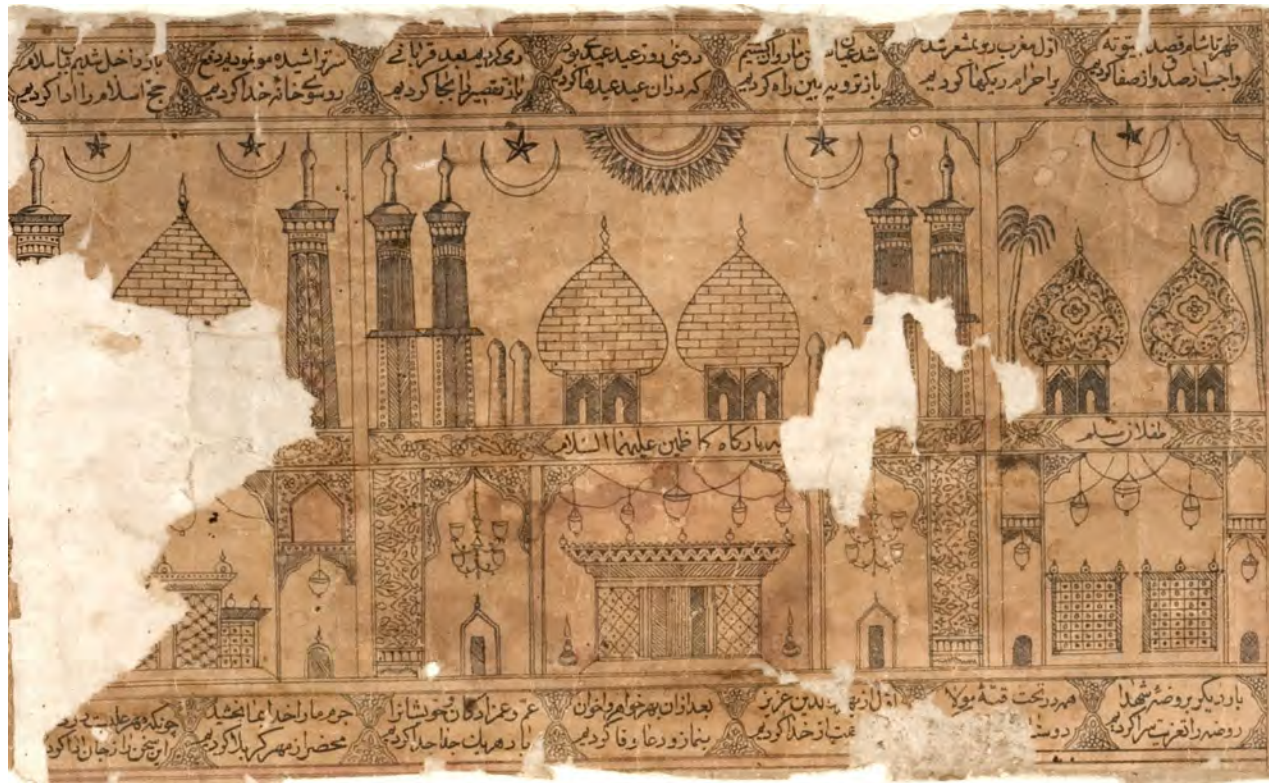 ظهر تا شام قصد بیتوته
واجب از صد و از صفا کردیم
اول مغرب رو بمشعر شد
بر احرام ریگها کردیم
شد عیان روان گشتیم
باز رو بر زمین راه کردیم
در منی روز عید عیدی بود
که در آن عید عیدها کردیم
رمی کردیم بعد قربانی
باز تقصیر را بجا کردیم
سر تراشیده مو نمودیم دفع
رو سوی خانه خدا کردیم
باز داخل شدیم
حج اسلام را ادا کردیم
طفلان مسلم
بارکاه کاظمین علیهما السلام
بار دیکر بروضهٔ شهدا
روضه را تعزیت سرا کردیم
همه در تحت قبهٔ مولا
اول از والدین عزیز
از خدا کردیم
بعد از آن بهر خواهر و اخوان
بنماز و دعا وفا کردیم
عم و عمزادکان و خویشانرا
یاد هر یک جدا جدا کردیم
جرم ما را خدا بما بخشید
محضر از مهر کربلا کردیم
چونکه مهر علیست در
این سخن را ز جان ادا کردیم